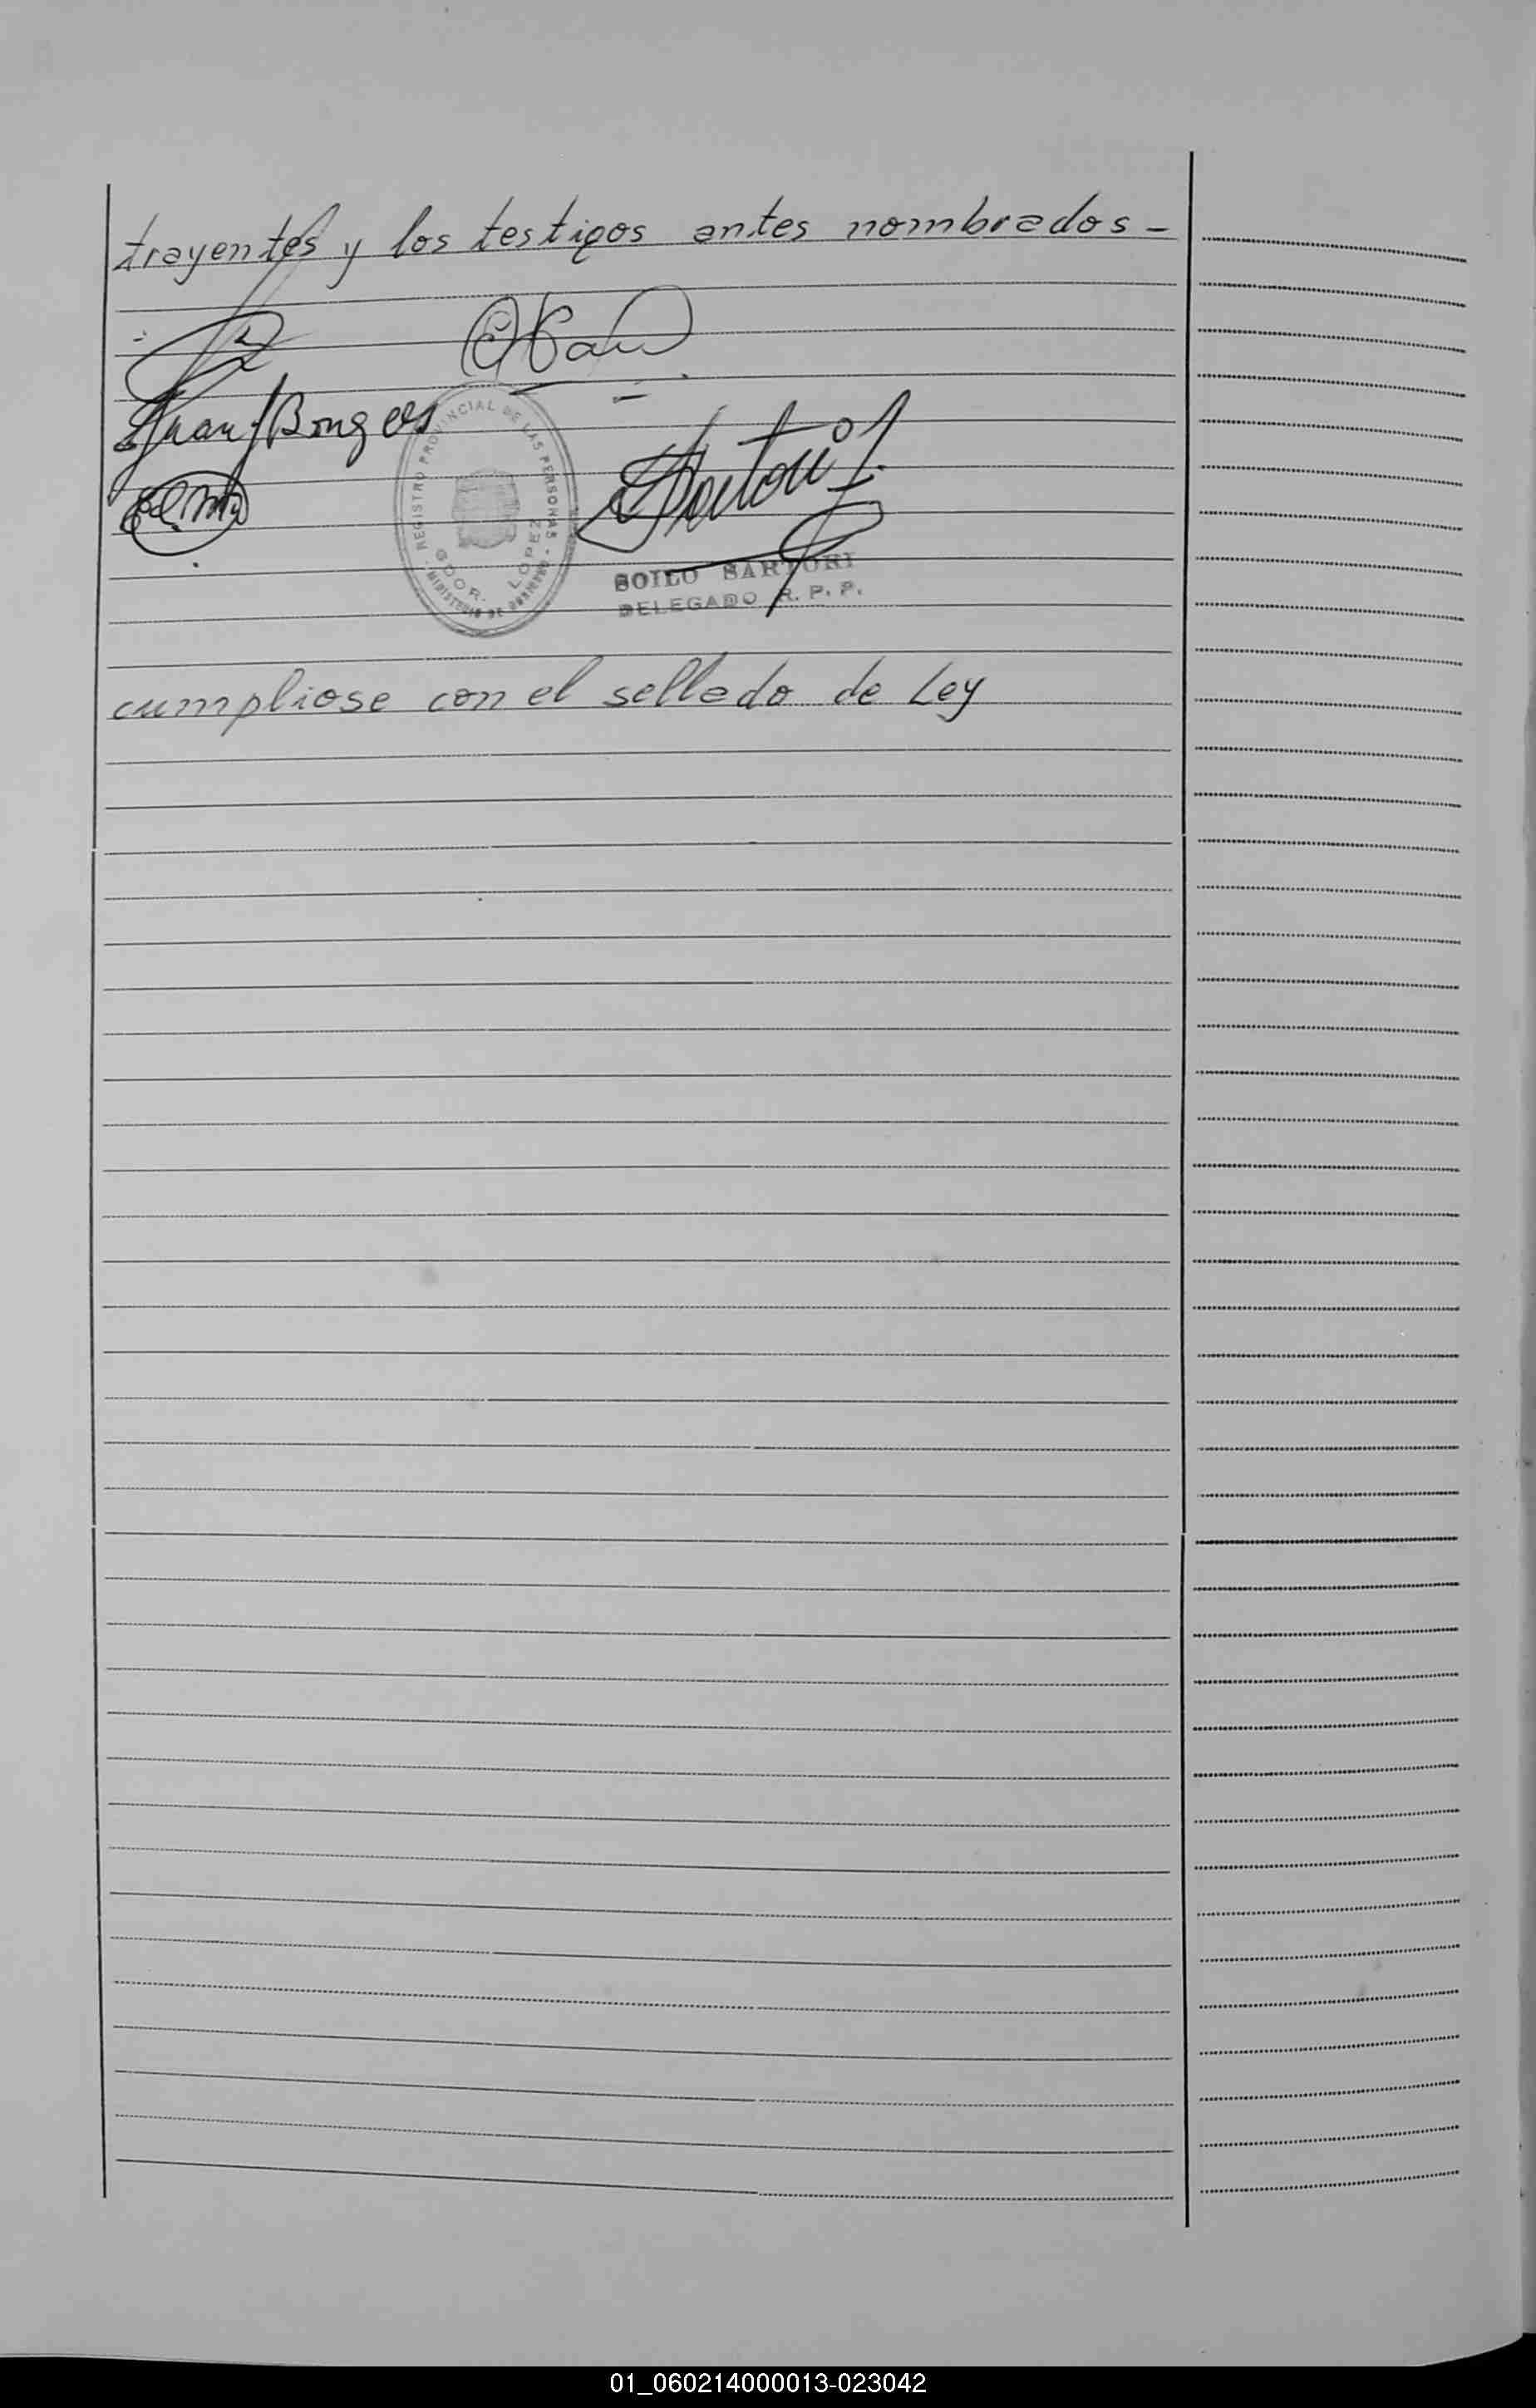 trayentes y los testigos antes nombrados -
Juan Borges
REGISTRO PROVINCIAL DE LAS PERSONAS -
GDOR. LOPEZ
MINISTERIO DE
SOILO SARTORI
DELEGADO R. P. P.
cumpliose con el sellado de Ley
01_060214000013-023042